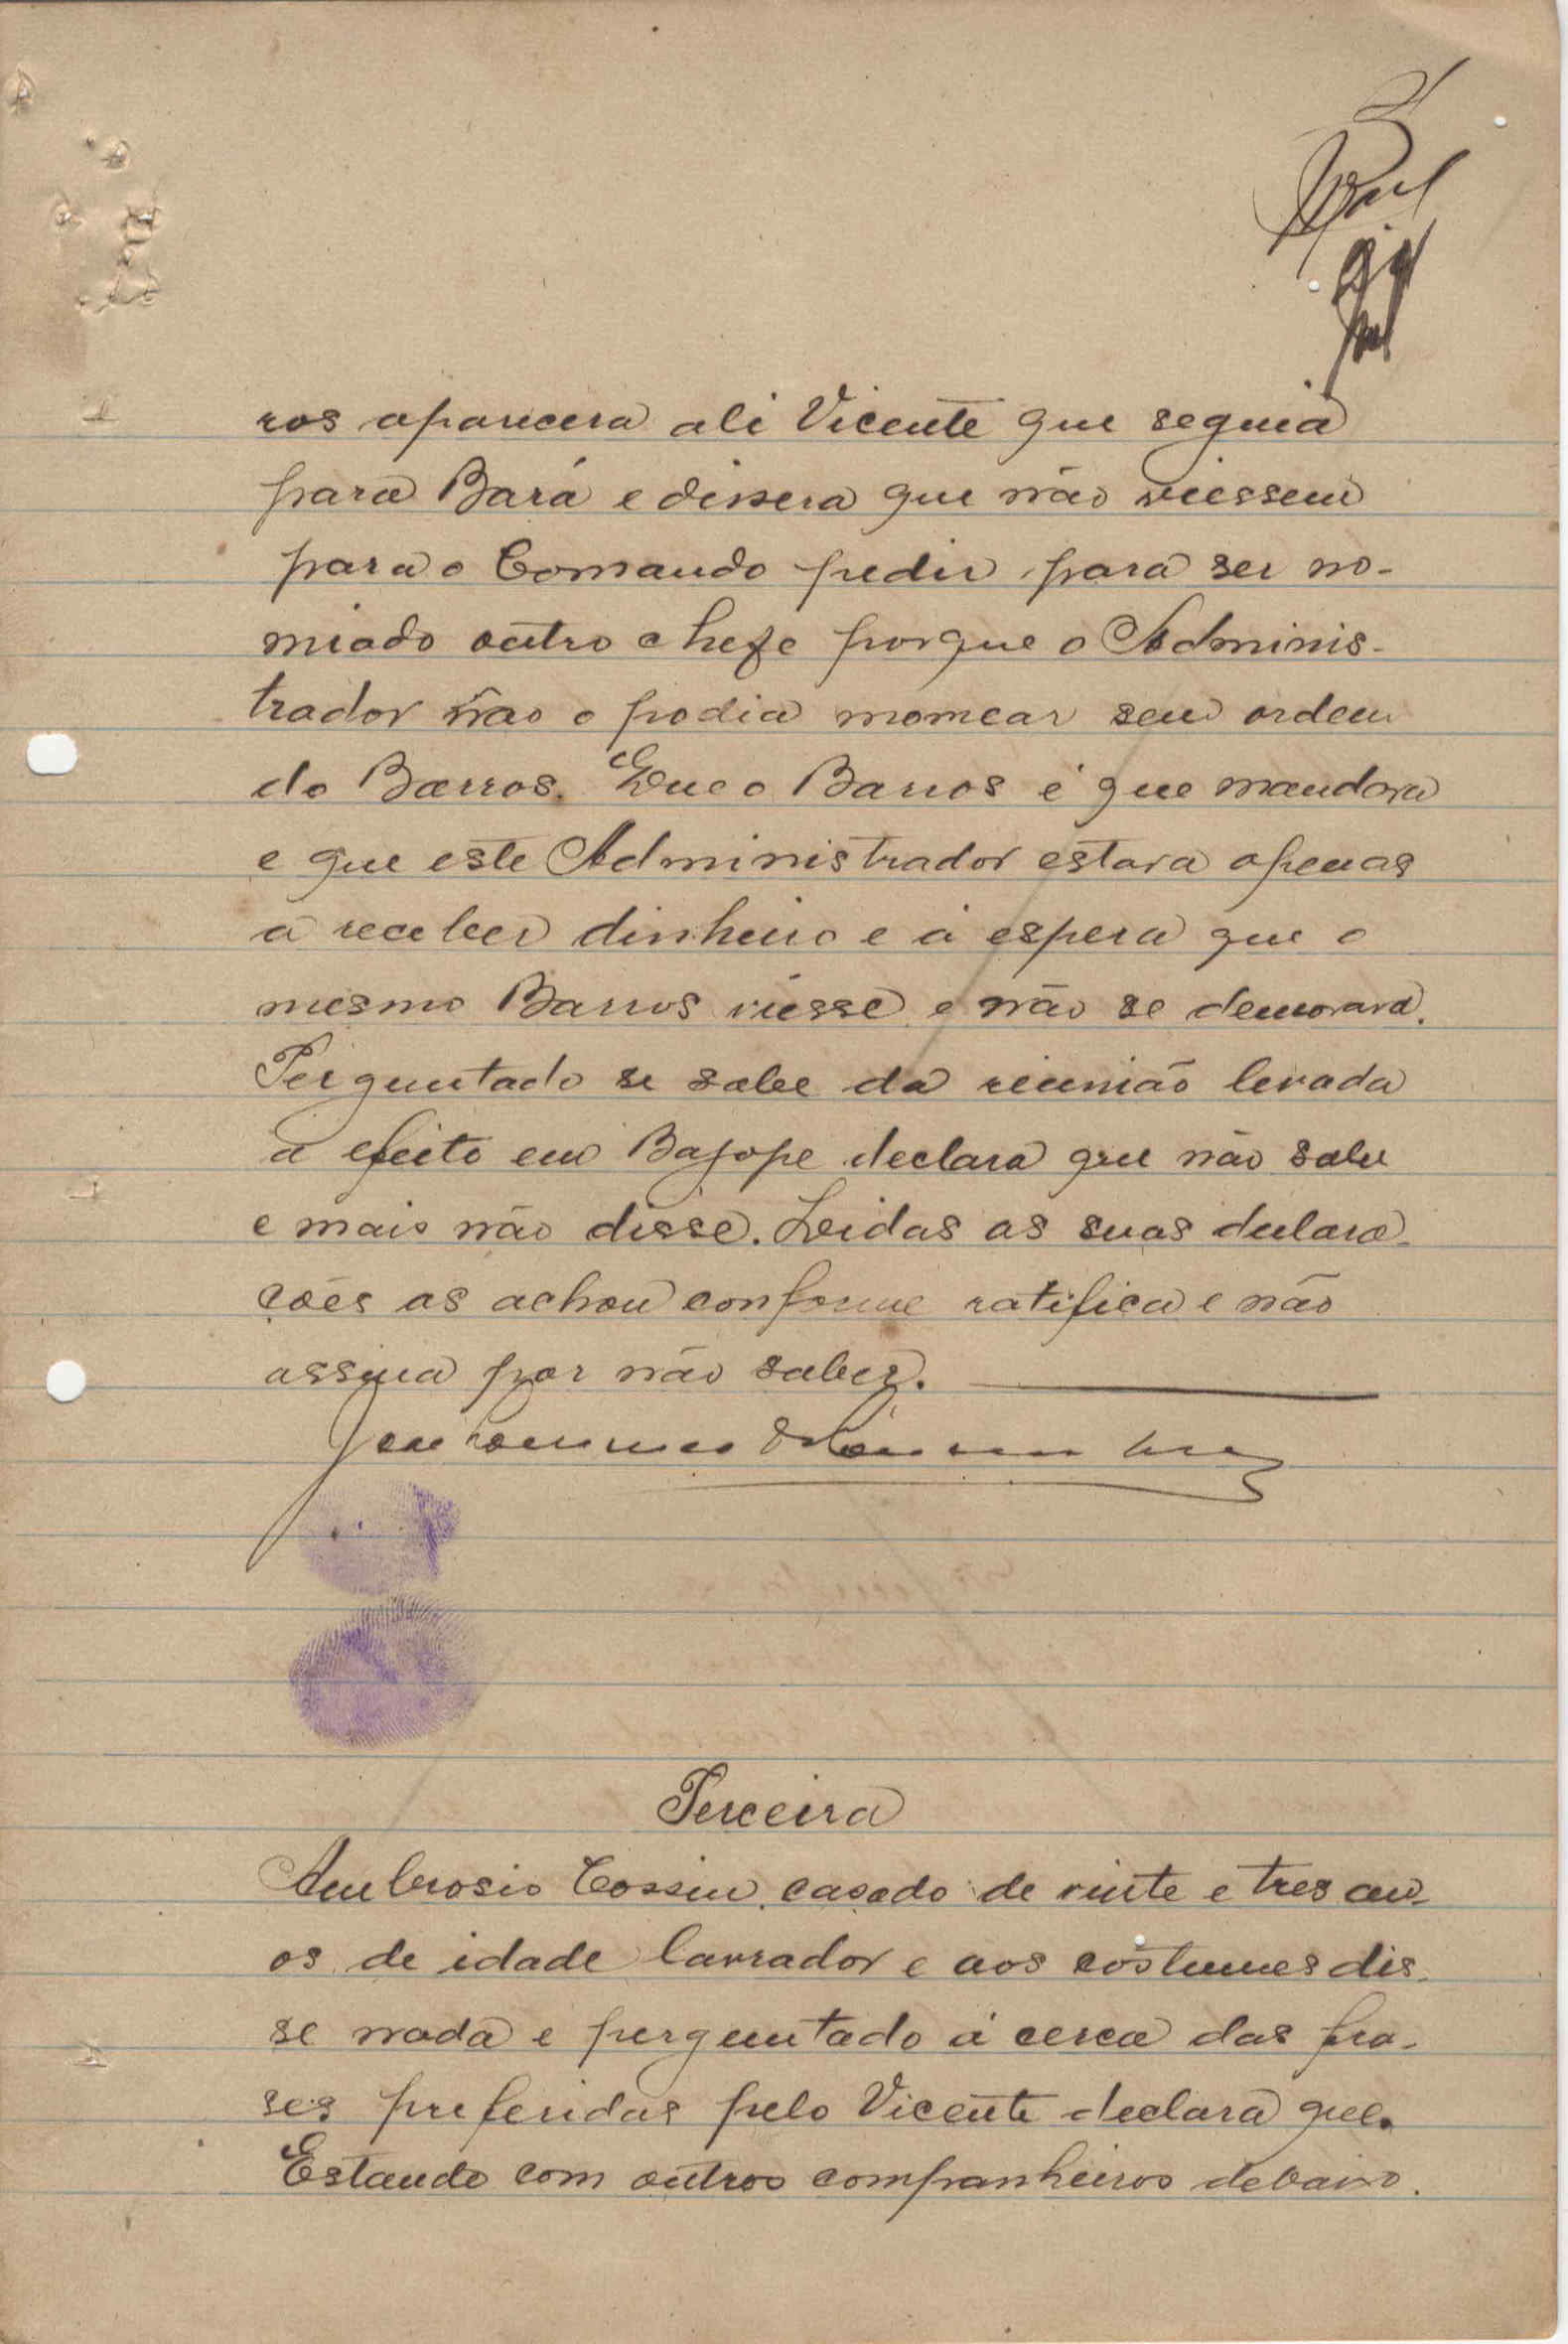 ros aparecera ali Vicente que seguia
para Bará e dissera que não viessem
para o Comando pedir para ser no-
miado outro chefe porque o Adminis-
trador não o podia nomear sem ordem
do Barros. Que o Barros é que mandava
e que este Administrador estava apenas
a receber dinheiro e á espera que o
mesmo Barros viesse e não se demorava.
Perguntado se sabe da reunião levada
a efeito em Bajope declara que não sabe
e mais não disse. Leidas as suas declara-
ções as achou conforme ratifica e não
assina por não saber.
Terceira
Ambrosio Cossin, casado de vinte e tres an-
os de idade lavrador e aos costumes dis-
se nada e perguntado á cerca das fra-
ses preferidas pelo Vicente declara que.
Estando com outros companheiros debaixo.